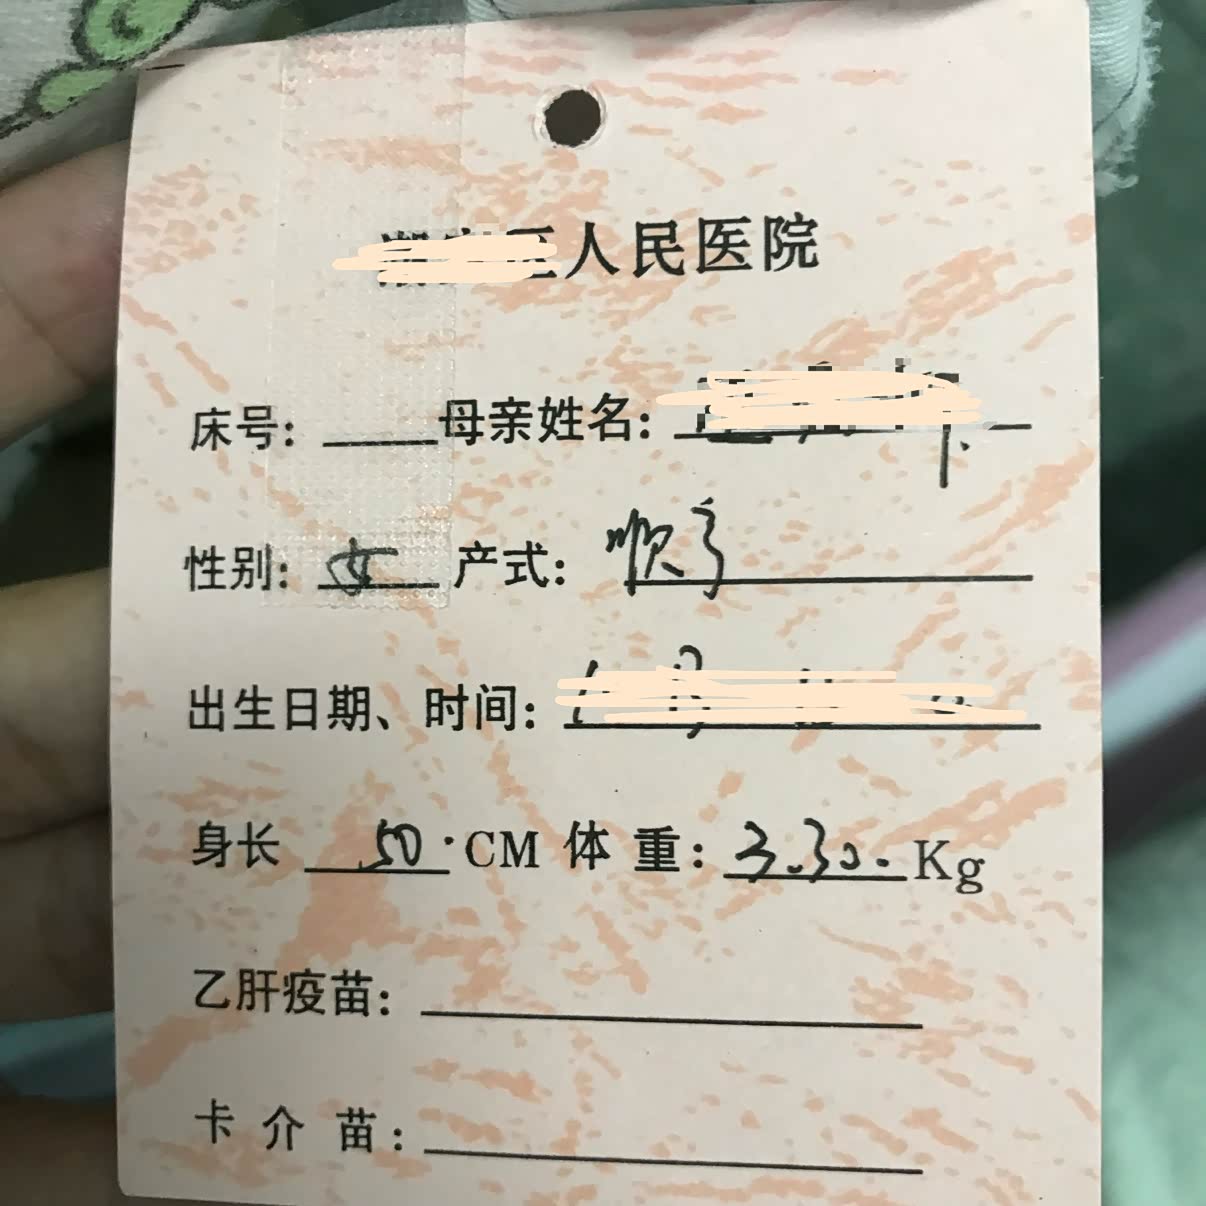 区人民医院
床号: 母亲姓名:
性别: 女 产式: 顺
出生日期、时间:
身长 50 CM 体 重: 3.30 Kg
乙肝疫苗:
卡 介 苗: